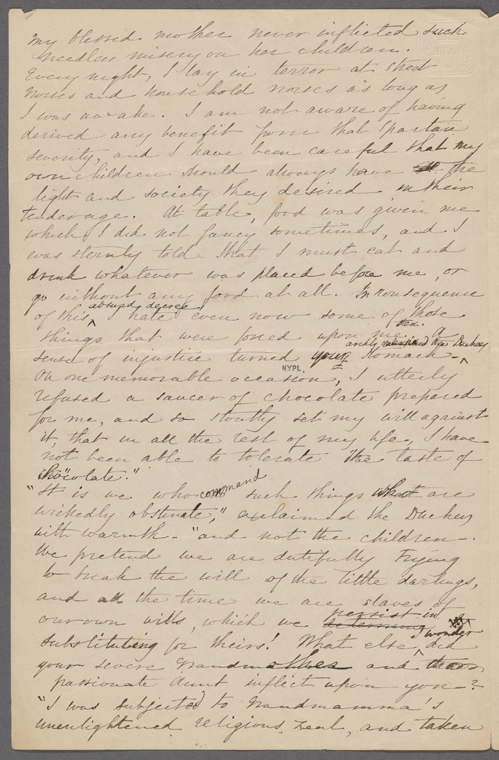 my blessed mother never inflicted such
needless misery on her children.
Every night, I lay in terror at street
noises and household noises as long as
I was awake. I am not aware of having
derived any benefit from that Spartan
severity, and I have been careful that my
own children should always have the
light and society they desired in their
tender age. At table, food was given me
which I did not fancy sometimes, and I
was sternly told that I must eat and
drink whatever was placed before me, or
go without any food at all. In consequence
of this absurd decree
I hate even now some of those
things that were forced upon me then. A
sense of injustice turned your stomach
and Duckey
NYPL.
On one memorable occasion, I utterly
refused a saucer of chocolate prepared
for me, and so stoutly set my will against
it, that in all the rest of my life, I have
not been able to tolerate the taste of
chocolate."
"It is we who command such things that are
wickedly obstinate," exclaimed the Duckey
with warmth - "and not the children.
We pretend we are dutifully trying
to break the will of the little darlings,
and all the time we are slaves of
our own wills, which we persist in
substituting for theirs! What else, I wonder did
your severe Grandmother and
passionate Aunt inflict upon you?
"I was subjected to Grandmamma's
unenlightened religious zeal, and taken